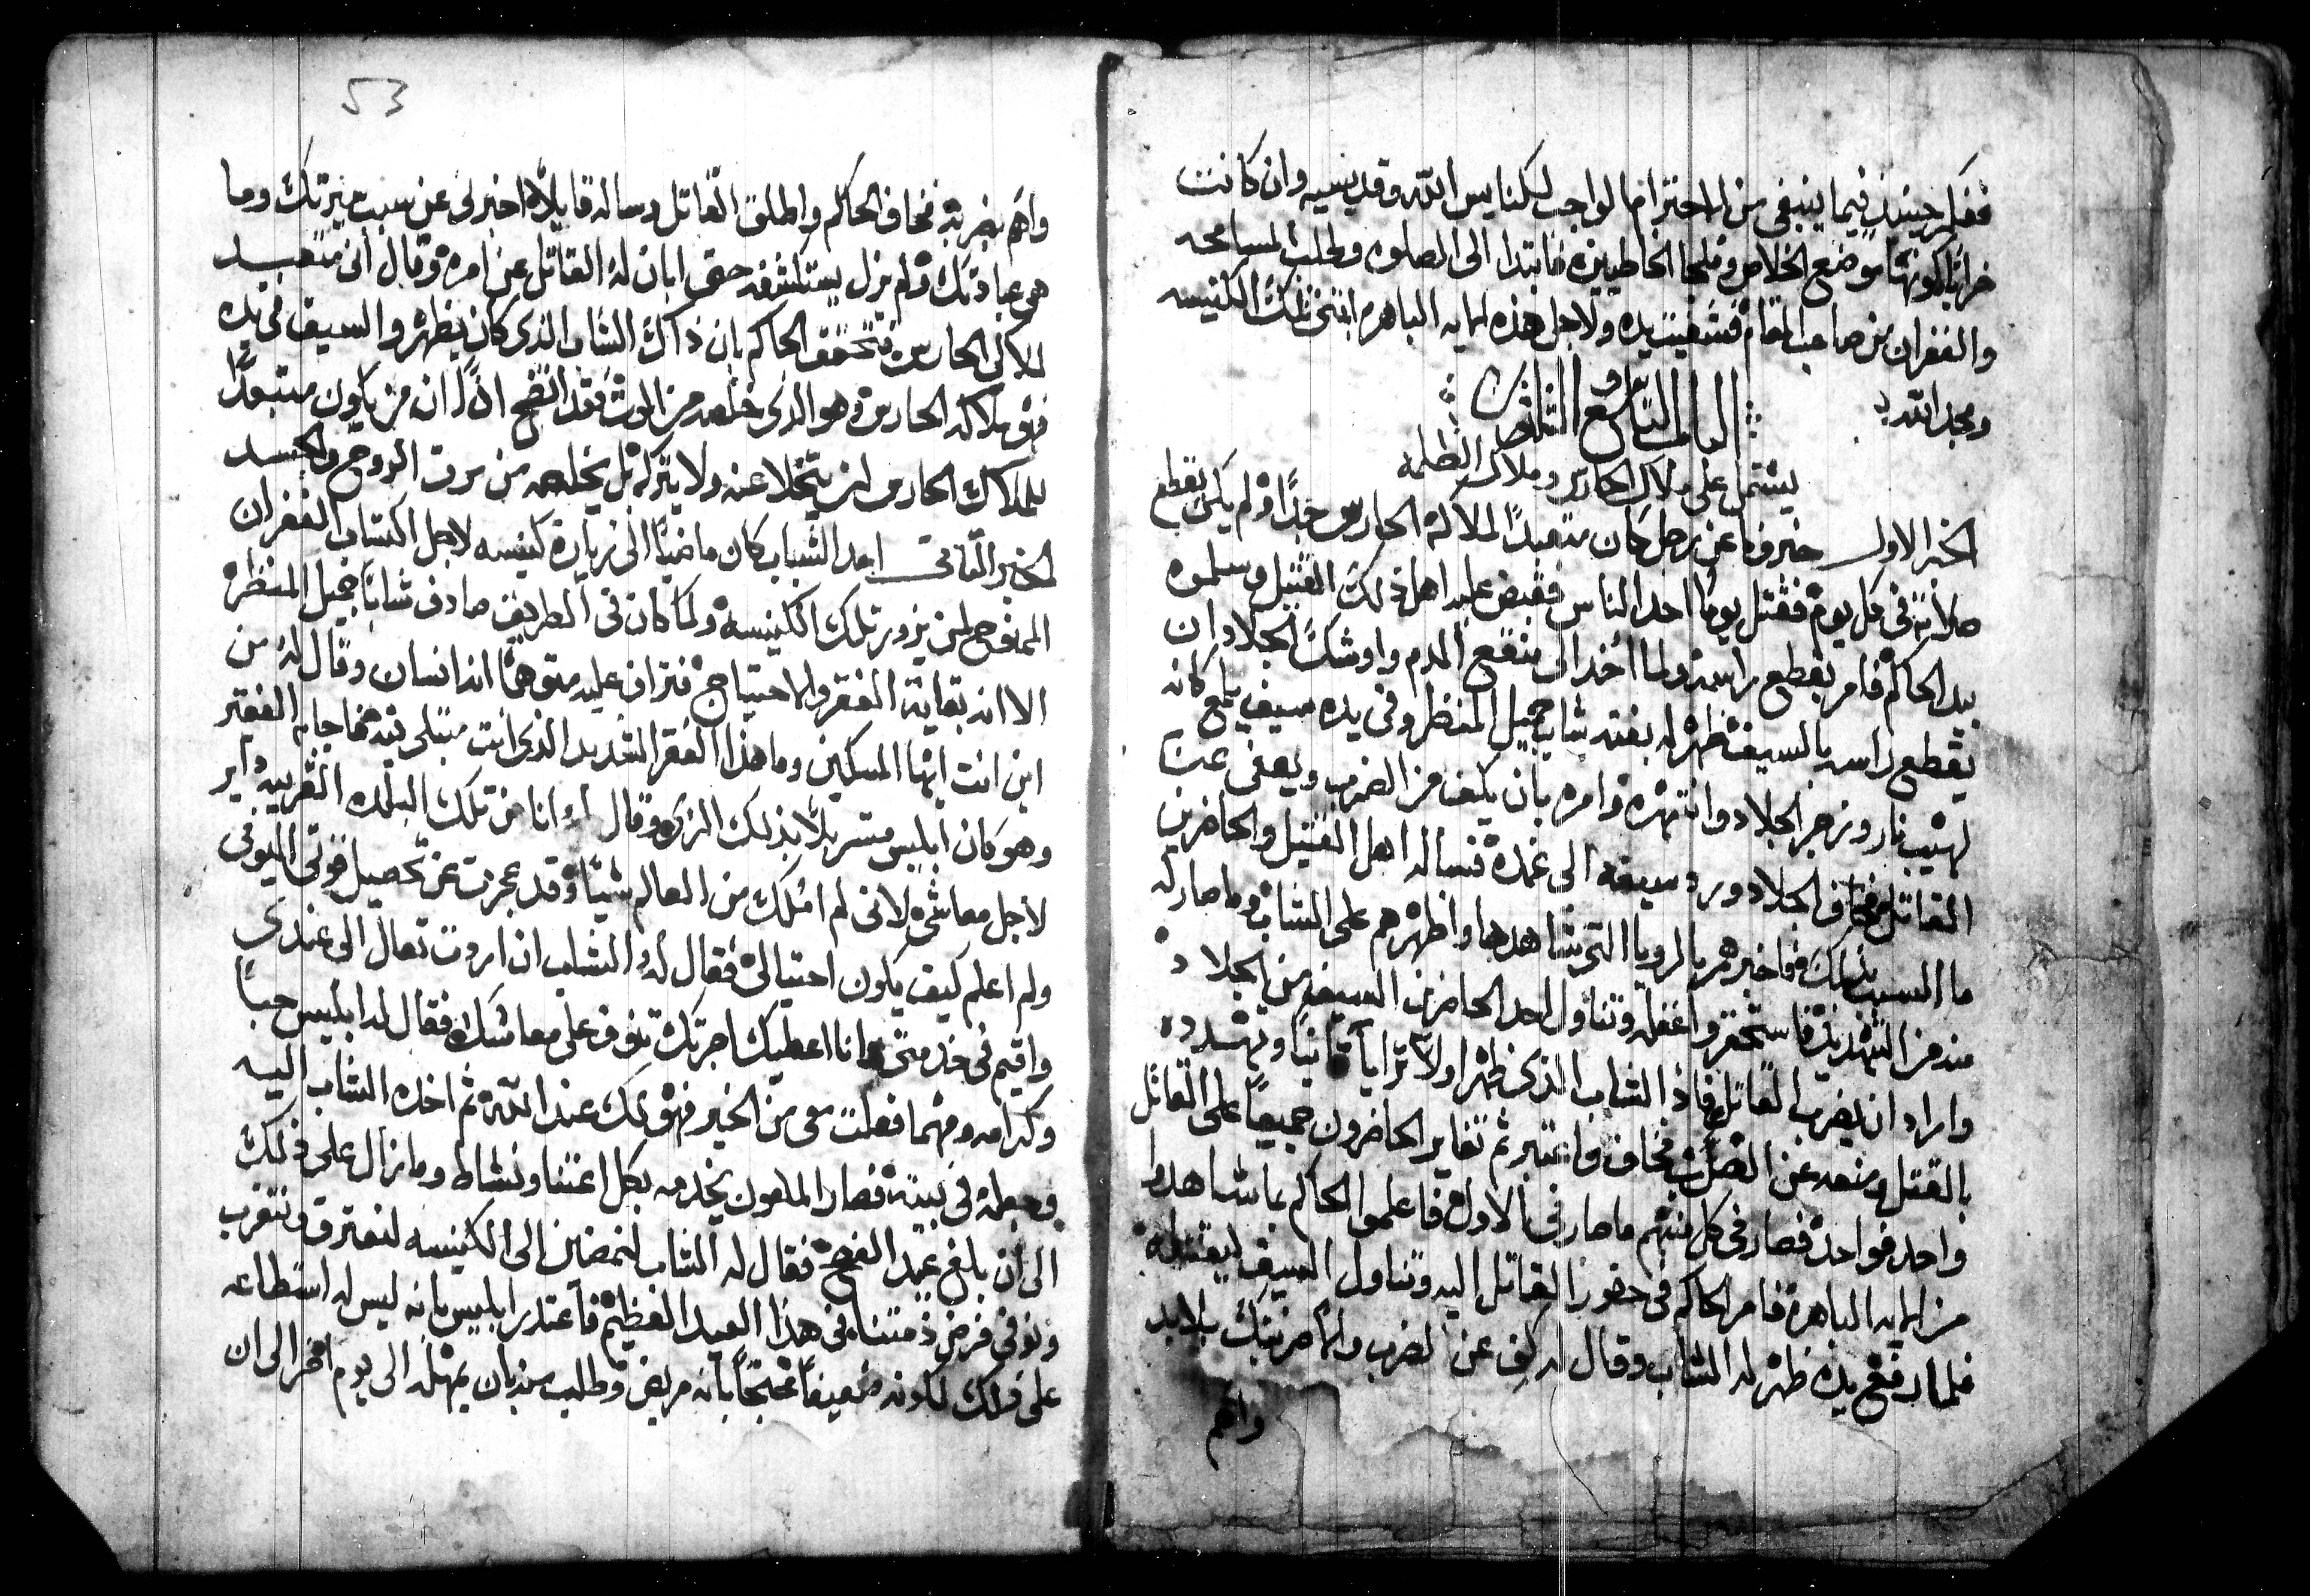 ففكر حينيذ فيما ينبغى من الاحترام الواجب لكنايس الله وقديسيه وان كانت
خرابًا لكونها موضع الخلاص وملجا الخاطيين فابتدا الى الصلوه وطلب المسامحه
والغفران من صاحب المقام فشفيت يده ولاجل هذه الايه الباهره اغتنى تلك الكنيسه
ومجد الله
الباب التاسع والثلثون
يشتمل على ملاك الحارس وملاك الظلمه
الخبر الاول خبروا عن رجل كان متعبدًا لملاكه الحارس جدًا ولم يكن يقطع
صلاته فى كل يوم فقتل يومًا احد الناس فقبض عليه اهل ذلك القتيل وسلموه
بيد الحاكم فامر بقطع راسه ولما اخذ الى منقع الدم واوشك الجلاد ان
يقطع راسه بالسيف ظهر له بغته شاب جميل المنظر وفى يده سيف يلمع كانه
لهيب نار وزجر الجلاد وانتهره وامره بان يكف من الضرب ويعفى عن
القاتل فخاف الجلاد ورد سيفه الى غمده فساله اهل القتيل والحاضرين
ما السبب بذلك فاخبرهم بالرويا التى شاهدها واظهرهم على الشاب وما صار له
منه من التهديد فاستحقروا عقله وتناول احد الحاضرين السيف من الجلاد
واراد ان يضرب القاتل فاذا الشاب الذى ظهر اولًا ترايا ثانيًا وتهدده
بالقتل ومنعه عن الضرب فخاف واعتبر ثم تغاير الحاضرون جميعًا على القاتل
واحد فواحد فصار فى كل منهم ما صار فى الاول فاعلموا الحاكم بما شاهدوا
من الايه الباهره فامر الحاكم فى حضور القاتل اليه وتناول السيف ليقتله
فلما رفع يده ظهر له الشاب وقال له كف عن الضرب والا ضربتك بلا بد
واهم
53
واهم بضربه فخاف الحاكم واطلق القاتل وساله قايلًا اخبرنى عن سبب سيرتك وما
هى عبادتك ولم يزل يستكشفه حتى ابان له القاتل عن امره وقال انى متعبد
لملاكى الحارس فتحقق الحاكم بان ذاك الشاب الذى كان يظهر والسيف فى يده
فهو ملاكه الحارس وهو الذى خلصه من الموت فقد اتضح اذًا ان من يكون متعبدًا
للملاك الحارس لن يتخلا عنه ولا يتركه بل يخلصه من موت الروح والجسد
الخبر الثانى احد الشباب كان ماضيًا الى زيارة كنيسه لاجل اكتساب الغفران
الممنوح لمن يزور تلك الكنيسه ولما كان فى الطريق صادف شابًا جميل المنظر
الا انه بغاية الفقر والاحتياج فتراف عليه متوهمًا انه انسان وقال له من
اين انت ايها المسكين وما هذا الفقر الشديد الذى انت مبتلى فيه فاجابه الفقير
وهو كان ابليس متسربلًا بذلك الزى وقال له انا من تلك البلده القريبه داير
لاجل معاشى لانى لم املك من العالم شيًا وقد عجزت عن تحصيل قوتى اليوفى
ولم اعلم كيف يكون احتيالى فقال له الشاب ان اردت تعال الى عندى
واقيم فى خدمتى وانا اعطيك اجرتك توفر على معاشك فقال له ابليس حبًا
وكرامه ومهما فعلت معى من الخير فهو لك عند الله ثم اخذه الشاب اليه
وجعله فى بيته فصار الملعون يخدمه بكل اعتنا ونشاط وما زال على ذلك
الى ان بلغ عيد الفصح فقال له الشاب لنمضين الى الكنيسه لنعترف ونتقرب
ونوفى فرض ذمتنا فى هذا العيد العظيم فاعتذر ابليس بانه ليس له استطاعه
على ذلك لكونه ضعيفًا محتجًا بانه مريض وطلب منه بان يمهله الى يوم اخر الى ان